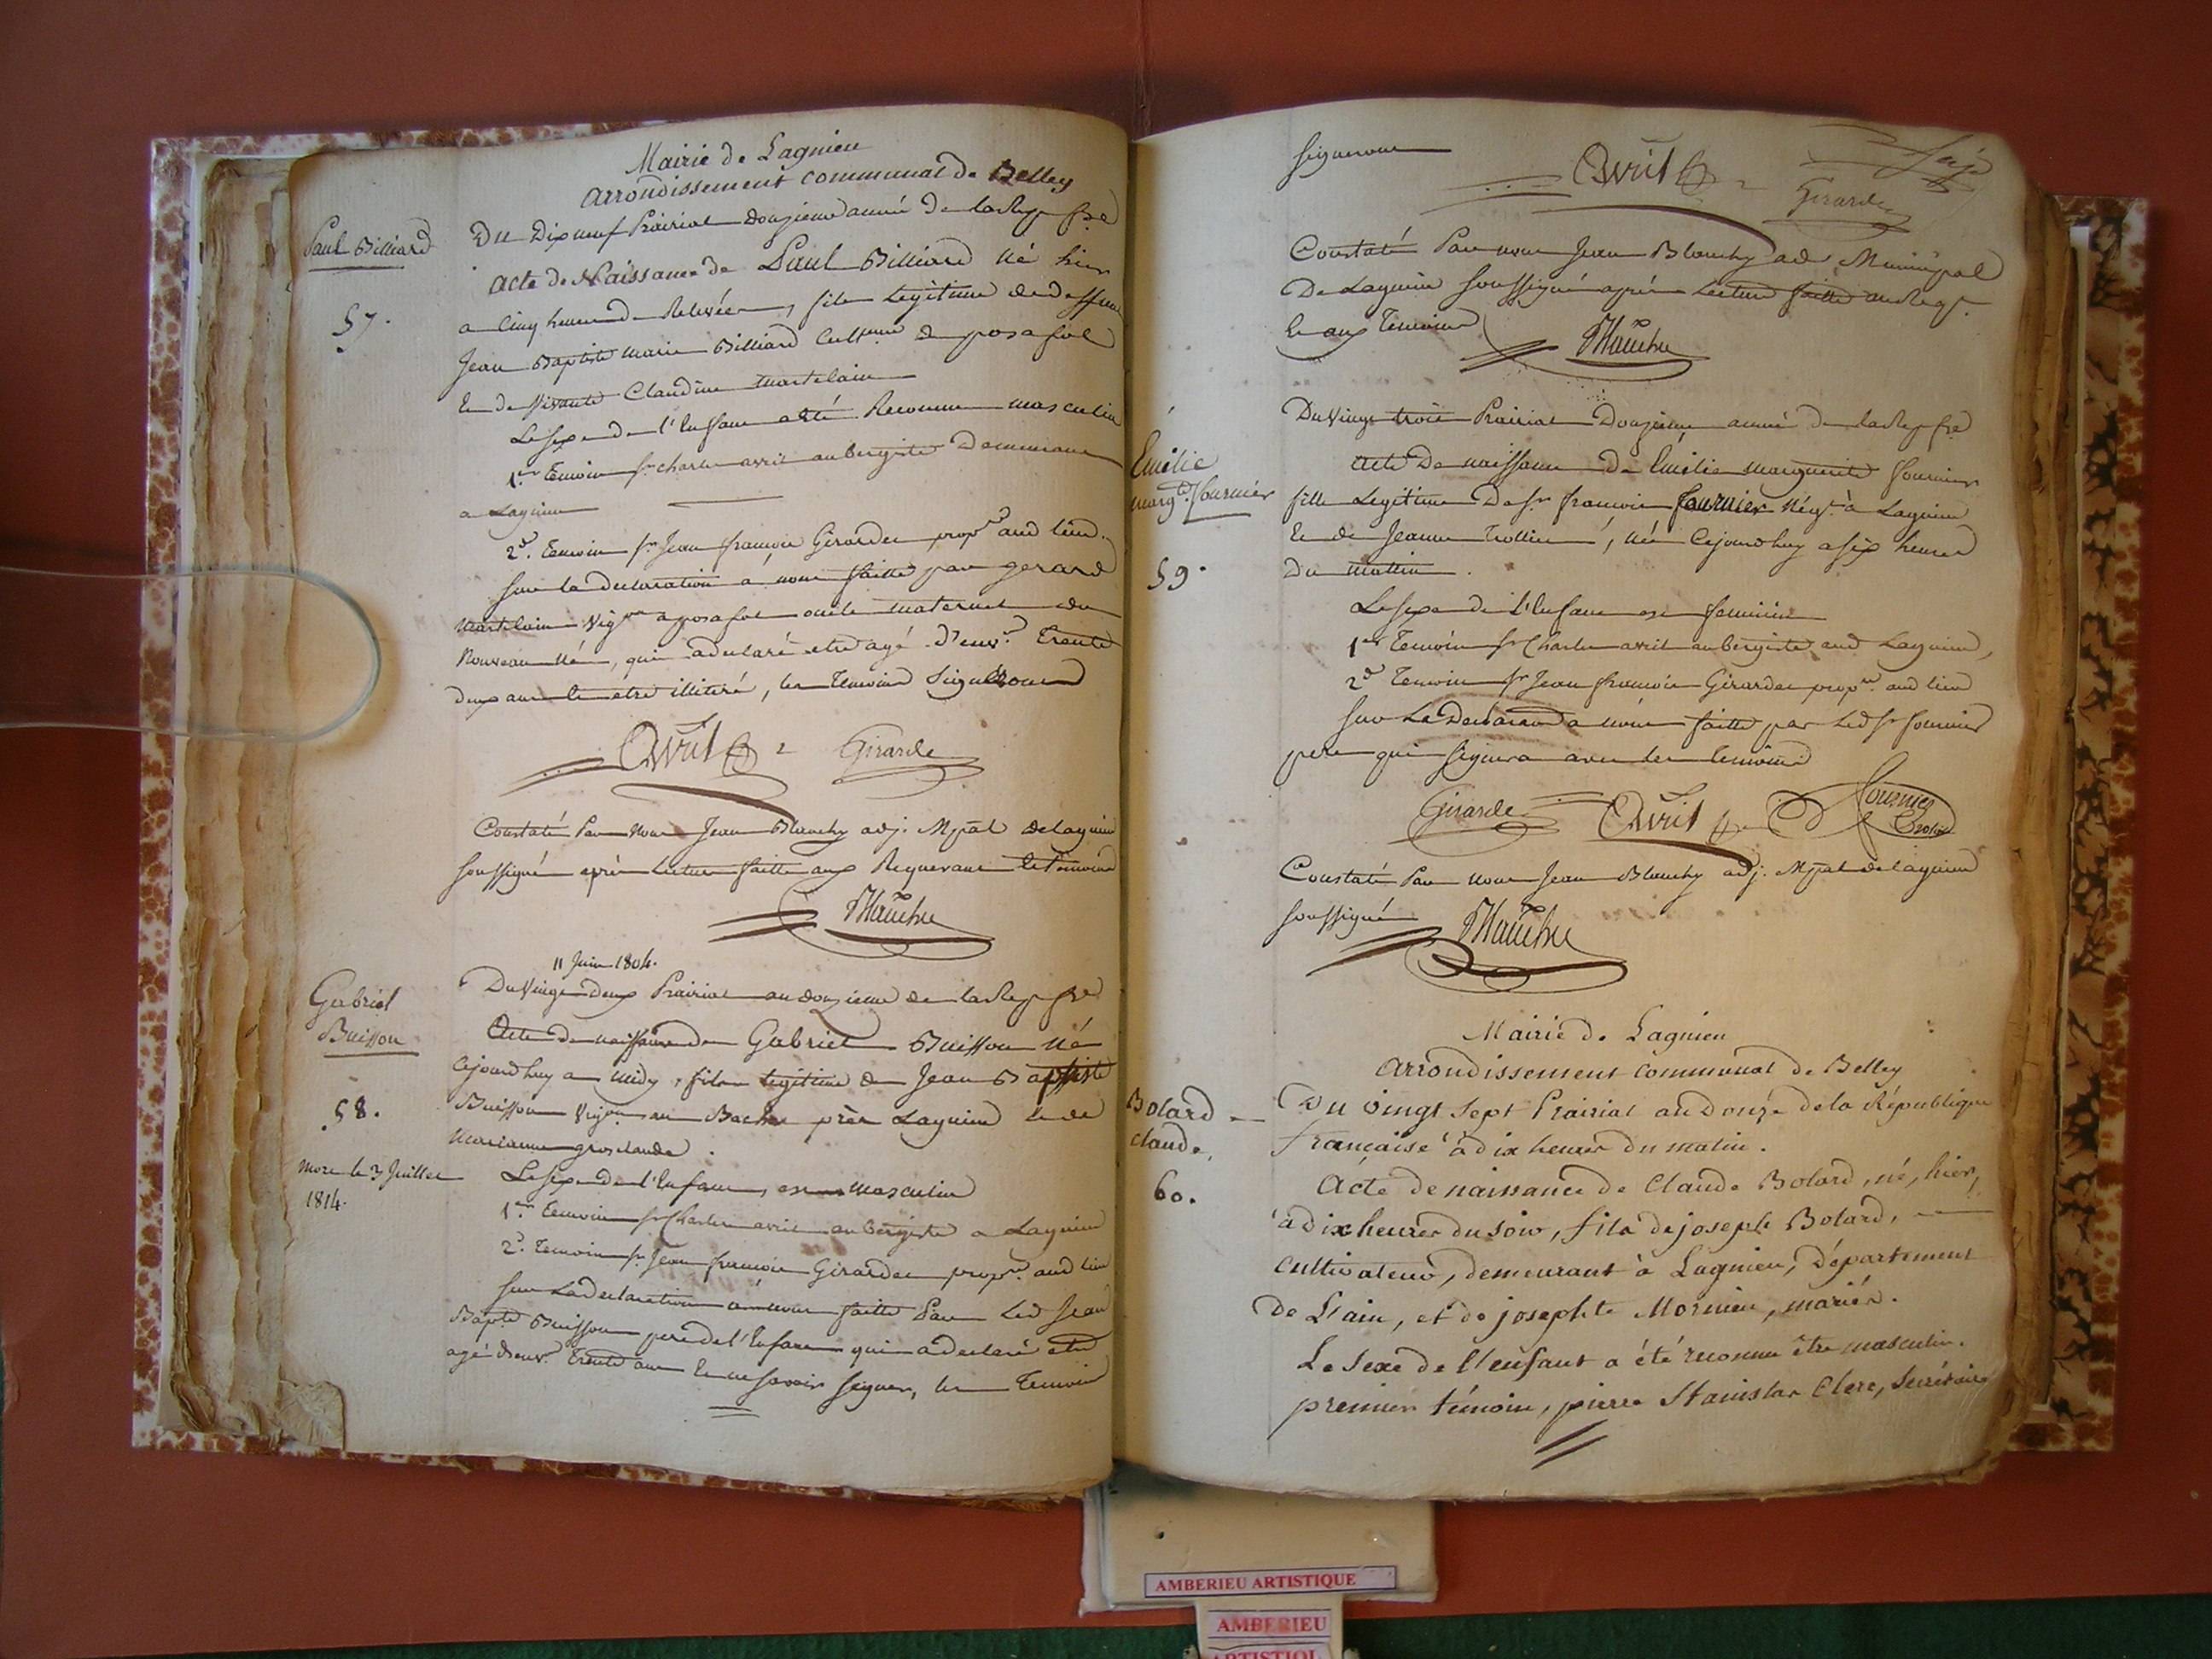 Mairie de Lagnieu
arrondissement communal de Belley
Paul Billiard
57.
Du Dixneuf Prairial douzieme année de la Rep. fse
acte de Naissance de Paul Billiard né hier
a cinq heures de Relevée, fils legitime de deffunt
Jean Baptiste marie Billiard de posafol
et de vivante Claudine martelain
Le sexe de l'Enfant a été Reconnu masculin
1er Temoin sr charles avril aubergiste Demeurant
a Lagnieu
2d. Temoin sr Jean françois Girardet propre aud lieu.
sur la declaration a nous faitte par gerard
martelain vigon a posafol oncle maternel du
Nouveau Né, qui a declaré etre agé d'envn Trente
deux ans et etre illitéré, les temoins signeront
Avril Girardet
Constaté Par Nous Jean Blanchy adj. Mpal de lagnieu
soussigné après Lecture faitte aux Requerant et temoins
11 Juin 1804.
Gabriel
Buisson
58.
mort le 3 Juillet
1814.
Du Vingt deux Prairial an douzieme de la Rep. fse
Acte de naissance de Gabriel Buisson né
cejourdhuy a midy, fils legitime de Jean Baptiste
Buisson vigon au près Lagnieu et de
Marianne grosclaude.
Le sexe de l'Enfant, est masculin
1er. Temoin sr Charles avril aubergiste a Lagnieu
2d. Temoin sr. Jean françois Girardet propre. aud lieu
sur La declaration a nous faitte Par Led Jean
Bapte Buisson pere de l'Enfant qui a declaré etre
agé d'envn Trente ans et ne savoir signer, les Temoins
signeront
Avril Girardet
Constaté Par nous Jean Blanchy adt Municipal
De Lagnieu soussigné après Lecture faitte au Reqt.
et aux Temoins
Emélie
margte fournier
59.
Du Vingt trois Prairial Douzieme année de la Rep fse
acte De naissance de Emélie marguerite fournier
fille Legitime De sr françois fournier Négt. à Lagnieu
et de Jeanne Trollier, née Cejourdhuy a six heures
Du mattin.
Le sexe de l'Enfant est feminin
1er Temoin sr Charles avril aubergiste aud Lagnieu,
2d Temoin sr Jean françois Girardet propre. aud lieu
sur La Declaration a nous faitte par Led sr fournier
pere qui signera avec les temoins
Girardet Avril fournier
Constaté Par nous Jean Blanchy adj. Mpal de lagnieu
soussigné
Mairie de Lagnieu
arrondissement communal de Belley
Bolard
claude,
60.
Du vingt sept Prairial an Douze de la République
française à dix heures du matin.
Acte de naissance de Claude Bolard, né, hier,
à dix heures du soir, fils de joseph Bolard,
cultivateur, demeurant à Lagnieu, Département
de L'ain, et de josephte Mornieu, mariés.
Le Sexe de l'enfant a été reconnu être masculin.
premier témoin, pierre Stanislas Clerc, Secrétaire
AMBERIEU ARTISTIQUE
AMBERIEU
ARTISTIQU